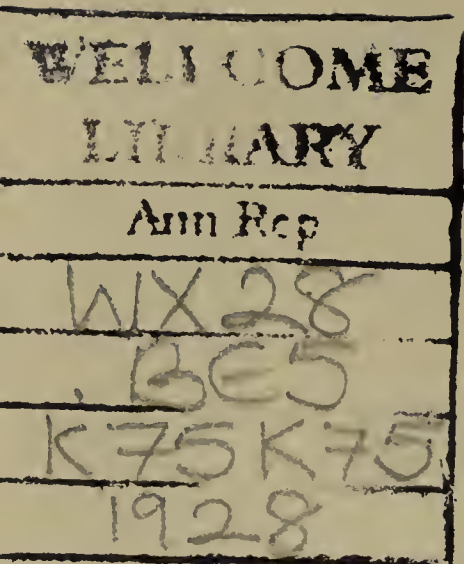 WELLCOME
LIBRARY
Ann Rep
WX28
.BE5
K75K75
1928